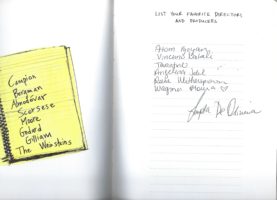 Campion
Bergman
Almodóvar
Scorsese
Moore
Godard
Gilliam
The Weinsteins
LIST YOUR FAVORITE DIRECTORS
AND PRODUCERS
Atom Egoyan
Vincenzo Natali
Tarantino
Angelina Jolie
Reese Witherspoon
Wagner Moura ♡
De Oliveira